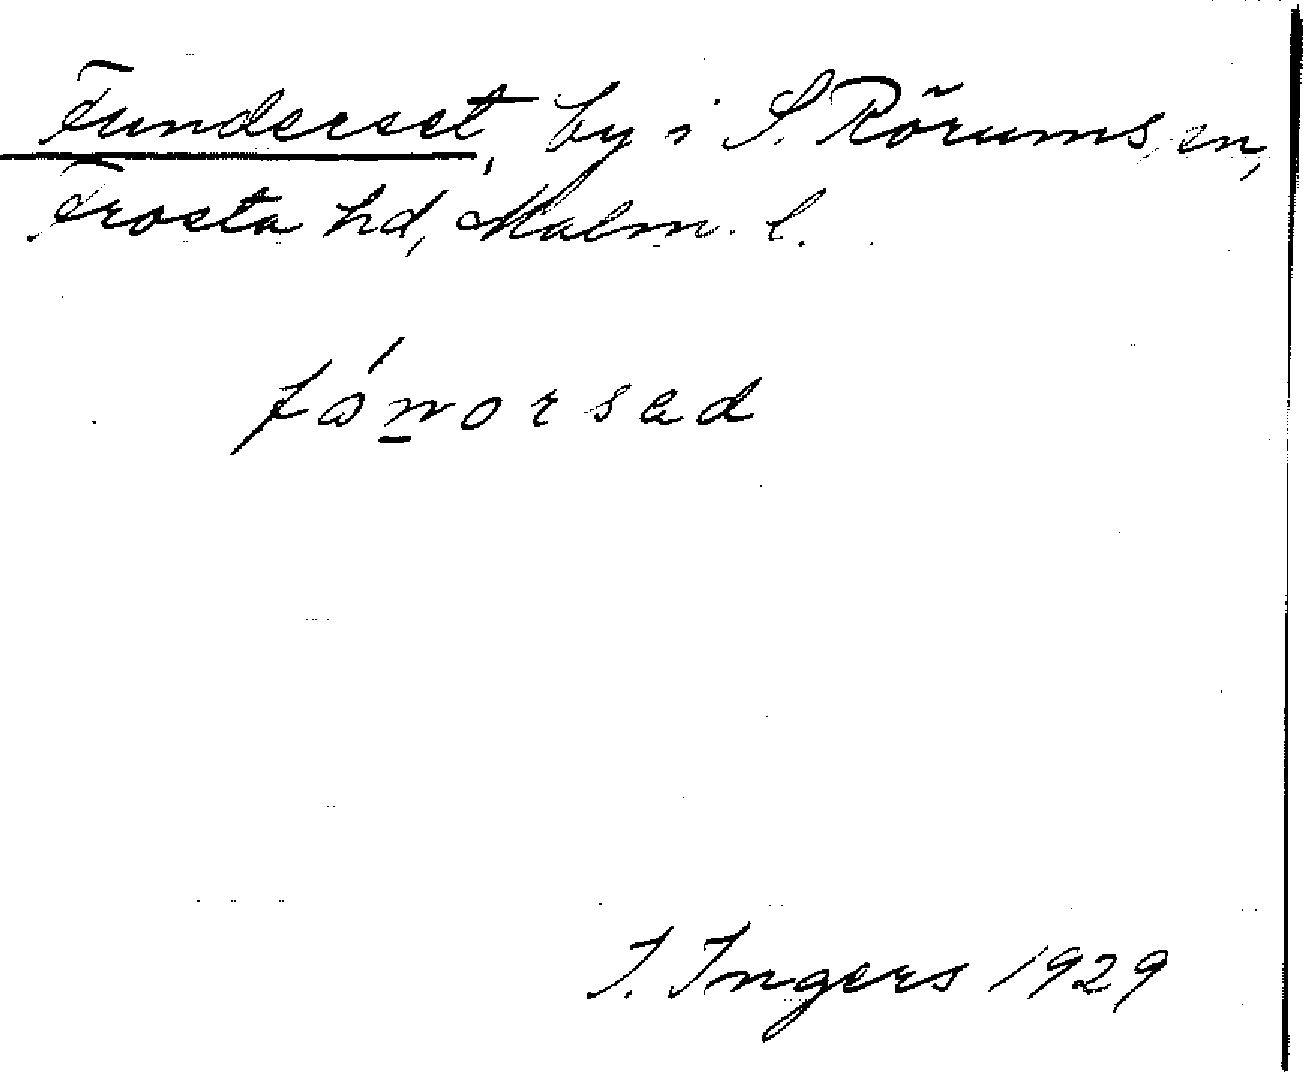 Funderset, by i S. Rörums sn,
Frosta hd, Malm. l.
fónorsad
I. Ingers 1929